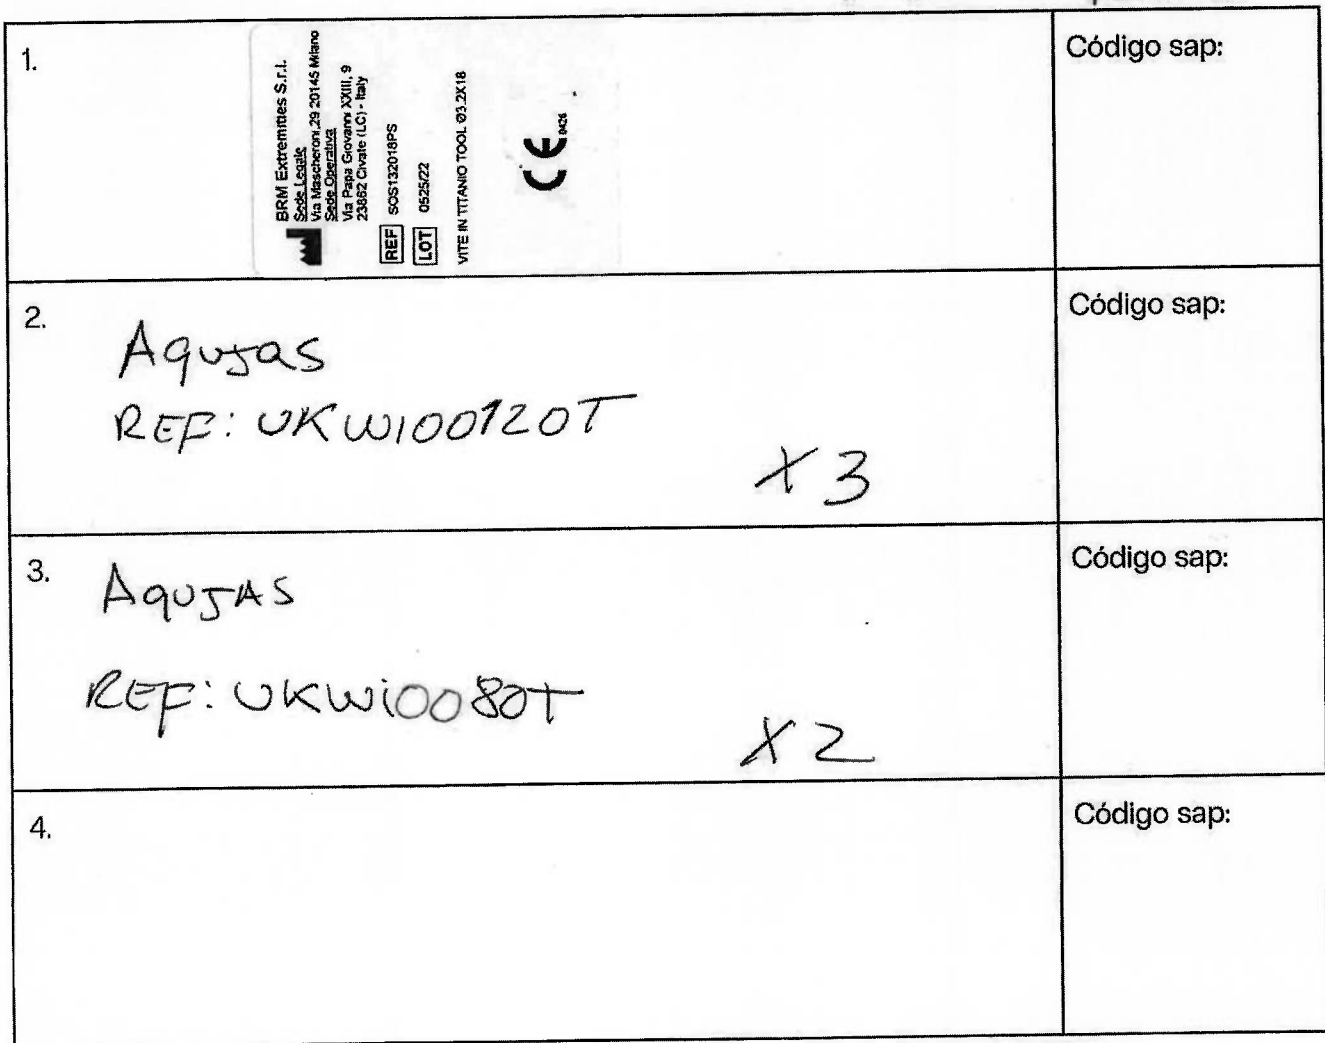 1.
BRM Extremities S.r.l.
Sede Legale
Via Mascheroni,29 20145 Milano
Sede Operativa
Via Papa Giovanni XXIII, 9
23862 Civate (LC) - Italy
REF SOS132018PS
LOT 0525/22
VITE IN TITANIO TOOL Ø3.2X18
CE
0426
Código sap:
2.
Agujas
REF: UKW100120T
X3
Código sap:
3.
AguJAS
REF: UKWi0080T
X2
Código sap:
4.
Código sap: